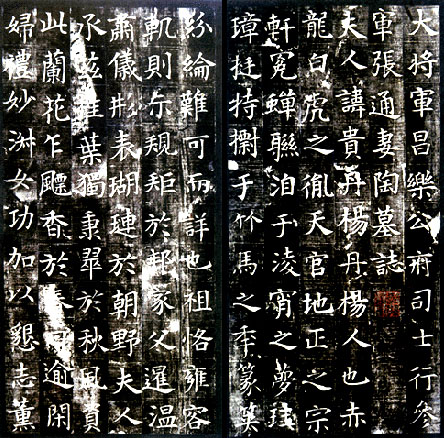 大將軍昌樂公府司士行參
軍張通妻陶墓誌
夫人諱貴丹楊丹楊人也赤
龍白虎之胤天官地正之宗
軒冕蟬聯洎于淩霄之夢珪
璋挺特于竹馬之季篆
紛綸難可而詳也祖恪雍容
軌則示規矩於邦家父暹温
肅儀形表瑚璉於朝野夫人
承茲葉獨秉翠於秋風
此蘭花乍飄香於春日逾閑
婦禮妙淋女功加以懇志薰